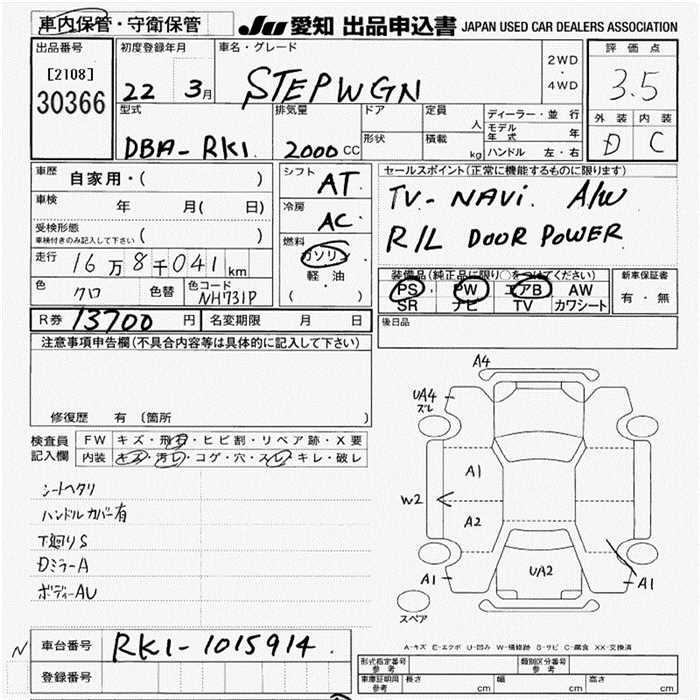 車内保管・守衛保管 JU 愛知 出品申込書 JAPAN USED CAR DEALERS ASSOCIATION
出品番号 初度登録年月 車名・グレード 2WD・4WD 評価点
[2108] 22 3月 STEPWGN 3.5
30366 型式 排気量 ドア 定員 人 ディーラー・並行 外装 内装
DBA-RK1. 2000CC 形状 積載 kg モデル年式 年 D C
ハンドル 左・右
車歴 自家用・( ) シフト AT セールスポイント(正常に機能するものに限ります)
車検 年 月( 日) 冷房 AC TV- NAVi. A/W
受検形態 ( ) R/L DOOR POWER
車検付きのみ記入して下さい 燃料 ガソリン
走行 16万8千041km 軽・油 装備品(純正品に限り○をつけてください) 新車保証書
色 クロ 色替 色コード NH731P ( ) PS PW エアB AW 有・無
SR ナビ TV カワシート
R券 13700円 名変期限 月 日 後日品
注意事項申告欄(不具合内容等は具体的に記入して下さい)
修復歴 有 (箇所 )
検査員記入欄 FW キズ・飛石・ヒビ割・リペア跡・X要
内装 キズ・汚レ・コゲ・穴・スレ・キレ・破レ
シートヘタリ
ハンドルカバー有
下廻りS
DミラーA
ボディーAU
A4
UA4
ズレ
A1
W2
A2
UA2
A1 A1
スペア
A-キズ E-エクボ U-凹み W-補修跡 S-サビ C-腐食 XX-交換済
N 車台番号 RK1-1015914.
登録番号
形式指定番号 参考 類別区分番号 参考
車庫証明用 参考 長さ cm 幅 cm 高さ cm